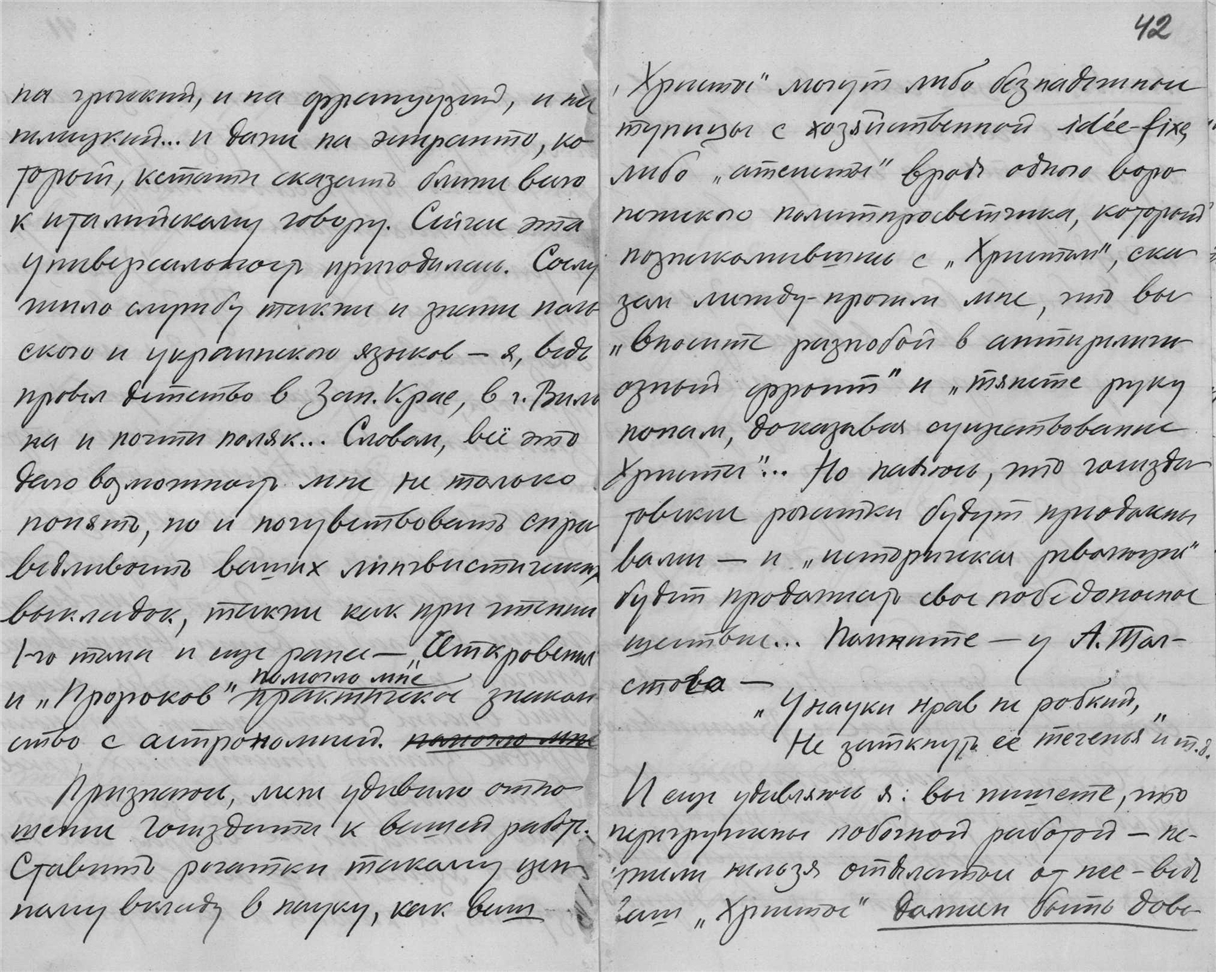 на греческий, и на французский, и на
немецкий... и даже на эсперанто, ко
торый, кстати сказать ближе всего
к италийскому говору. Сейчас эта
универсальность пригодилась. Сослу
жило службу также и знание поль
ского и украинского языков — я, ведь
провел детство в Зап. Крае, в г. Виль
на и почти поляк... Словом, всё это
дало возможность мне не только
понять, но и почувствовать спра
ведливость ваших лингвистических
выкладок, также как при чтении
1-го тома и еще ранее — „Откровения
и „Пророков" помогло мне практическое знаком
ство с астрономией. помогло мне
Признаюсь, меня удивило отно
шение Госиздата к вашей работе.
Ставить рогатки такому цен
ному вкладу в науку, как ваш
42
„Христос" могут либо безнадежные
тупицы с хозяйственной idée-fixe,
либо „атеисты" вроде одного воро
нежского политпросветчика, который
познакомившись с „Христом", ска
зал между-прочим мне, что вы
„вносите разнобой в антирелиги
озный фронт" и „тянете руку
попам, доказывая существование
Христа"... Но надеюсь, что госизда
товские рогатки будут преодолены
вами — и „историческая революция"
будет продолжать свое победоносное
шествие... Помните — у А. Тол-
стого —
„У науки нрав не робкий,
Не заткнуть её теченья" и т.д.
И еще удивляюсь я: вы пишете, что
перегружены побочной работой — не-
ужели нельзя отделаться от нее — ведь
ваш „Христос" должен быть дове-